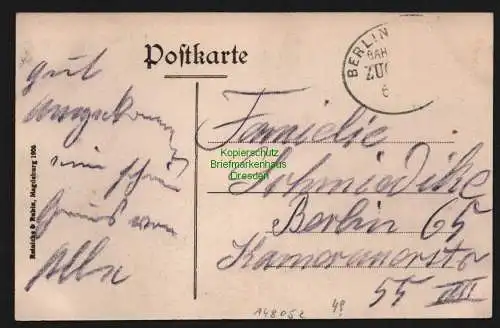 Postkarte
BERLIN
BAH
ZUG
6
gut
angekommen
ein schön
Gruss von
Reinicke & Rubin, Magdeburg 1906
Familie
Schmiedike
Berlin 65
Kameruner str
55 III
Kopierschutz
Briefmarkenhaus
Dresden
148052
49